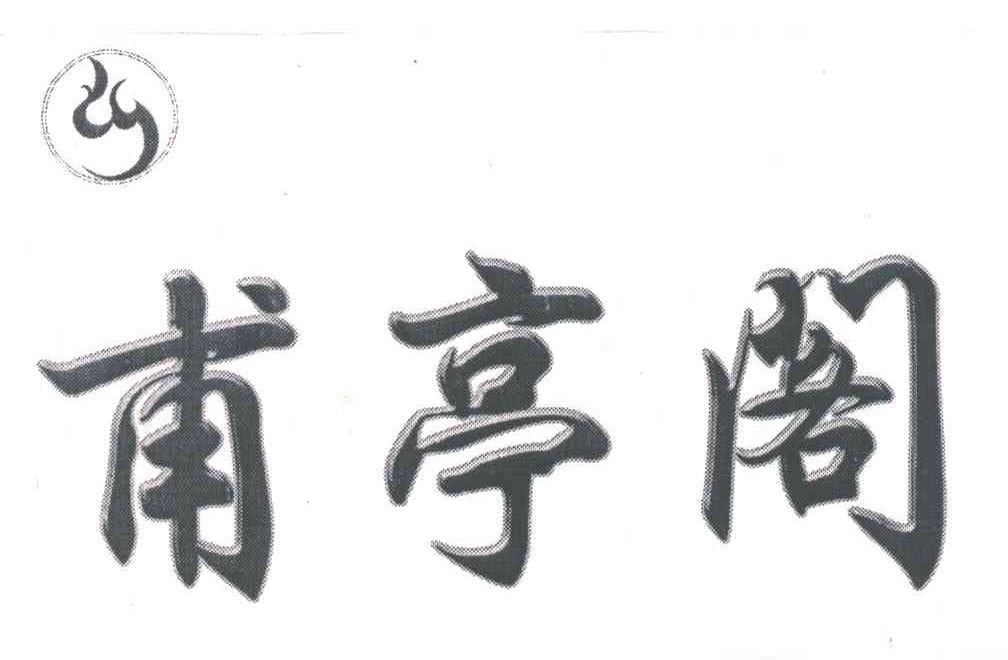 甫亭阁